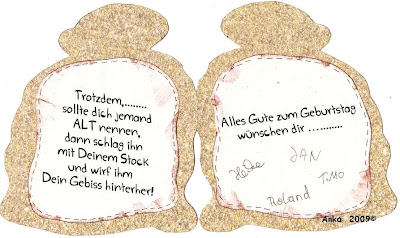 Trotzdem,........
sollte dich jemand
ALT nennen,
dann schlag ihn
mit Deinem Stock
und wirf ihm
Dein Gebiss hinterher!
Alles Gute zum Geburtstag
wünschen dir ............
Heike JAN
Roland TIMO
Anka 2009©